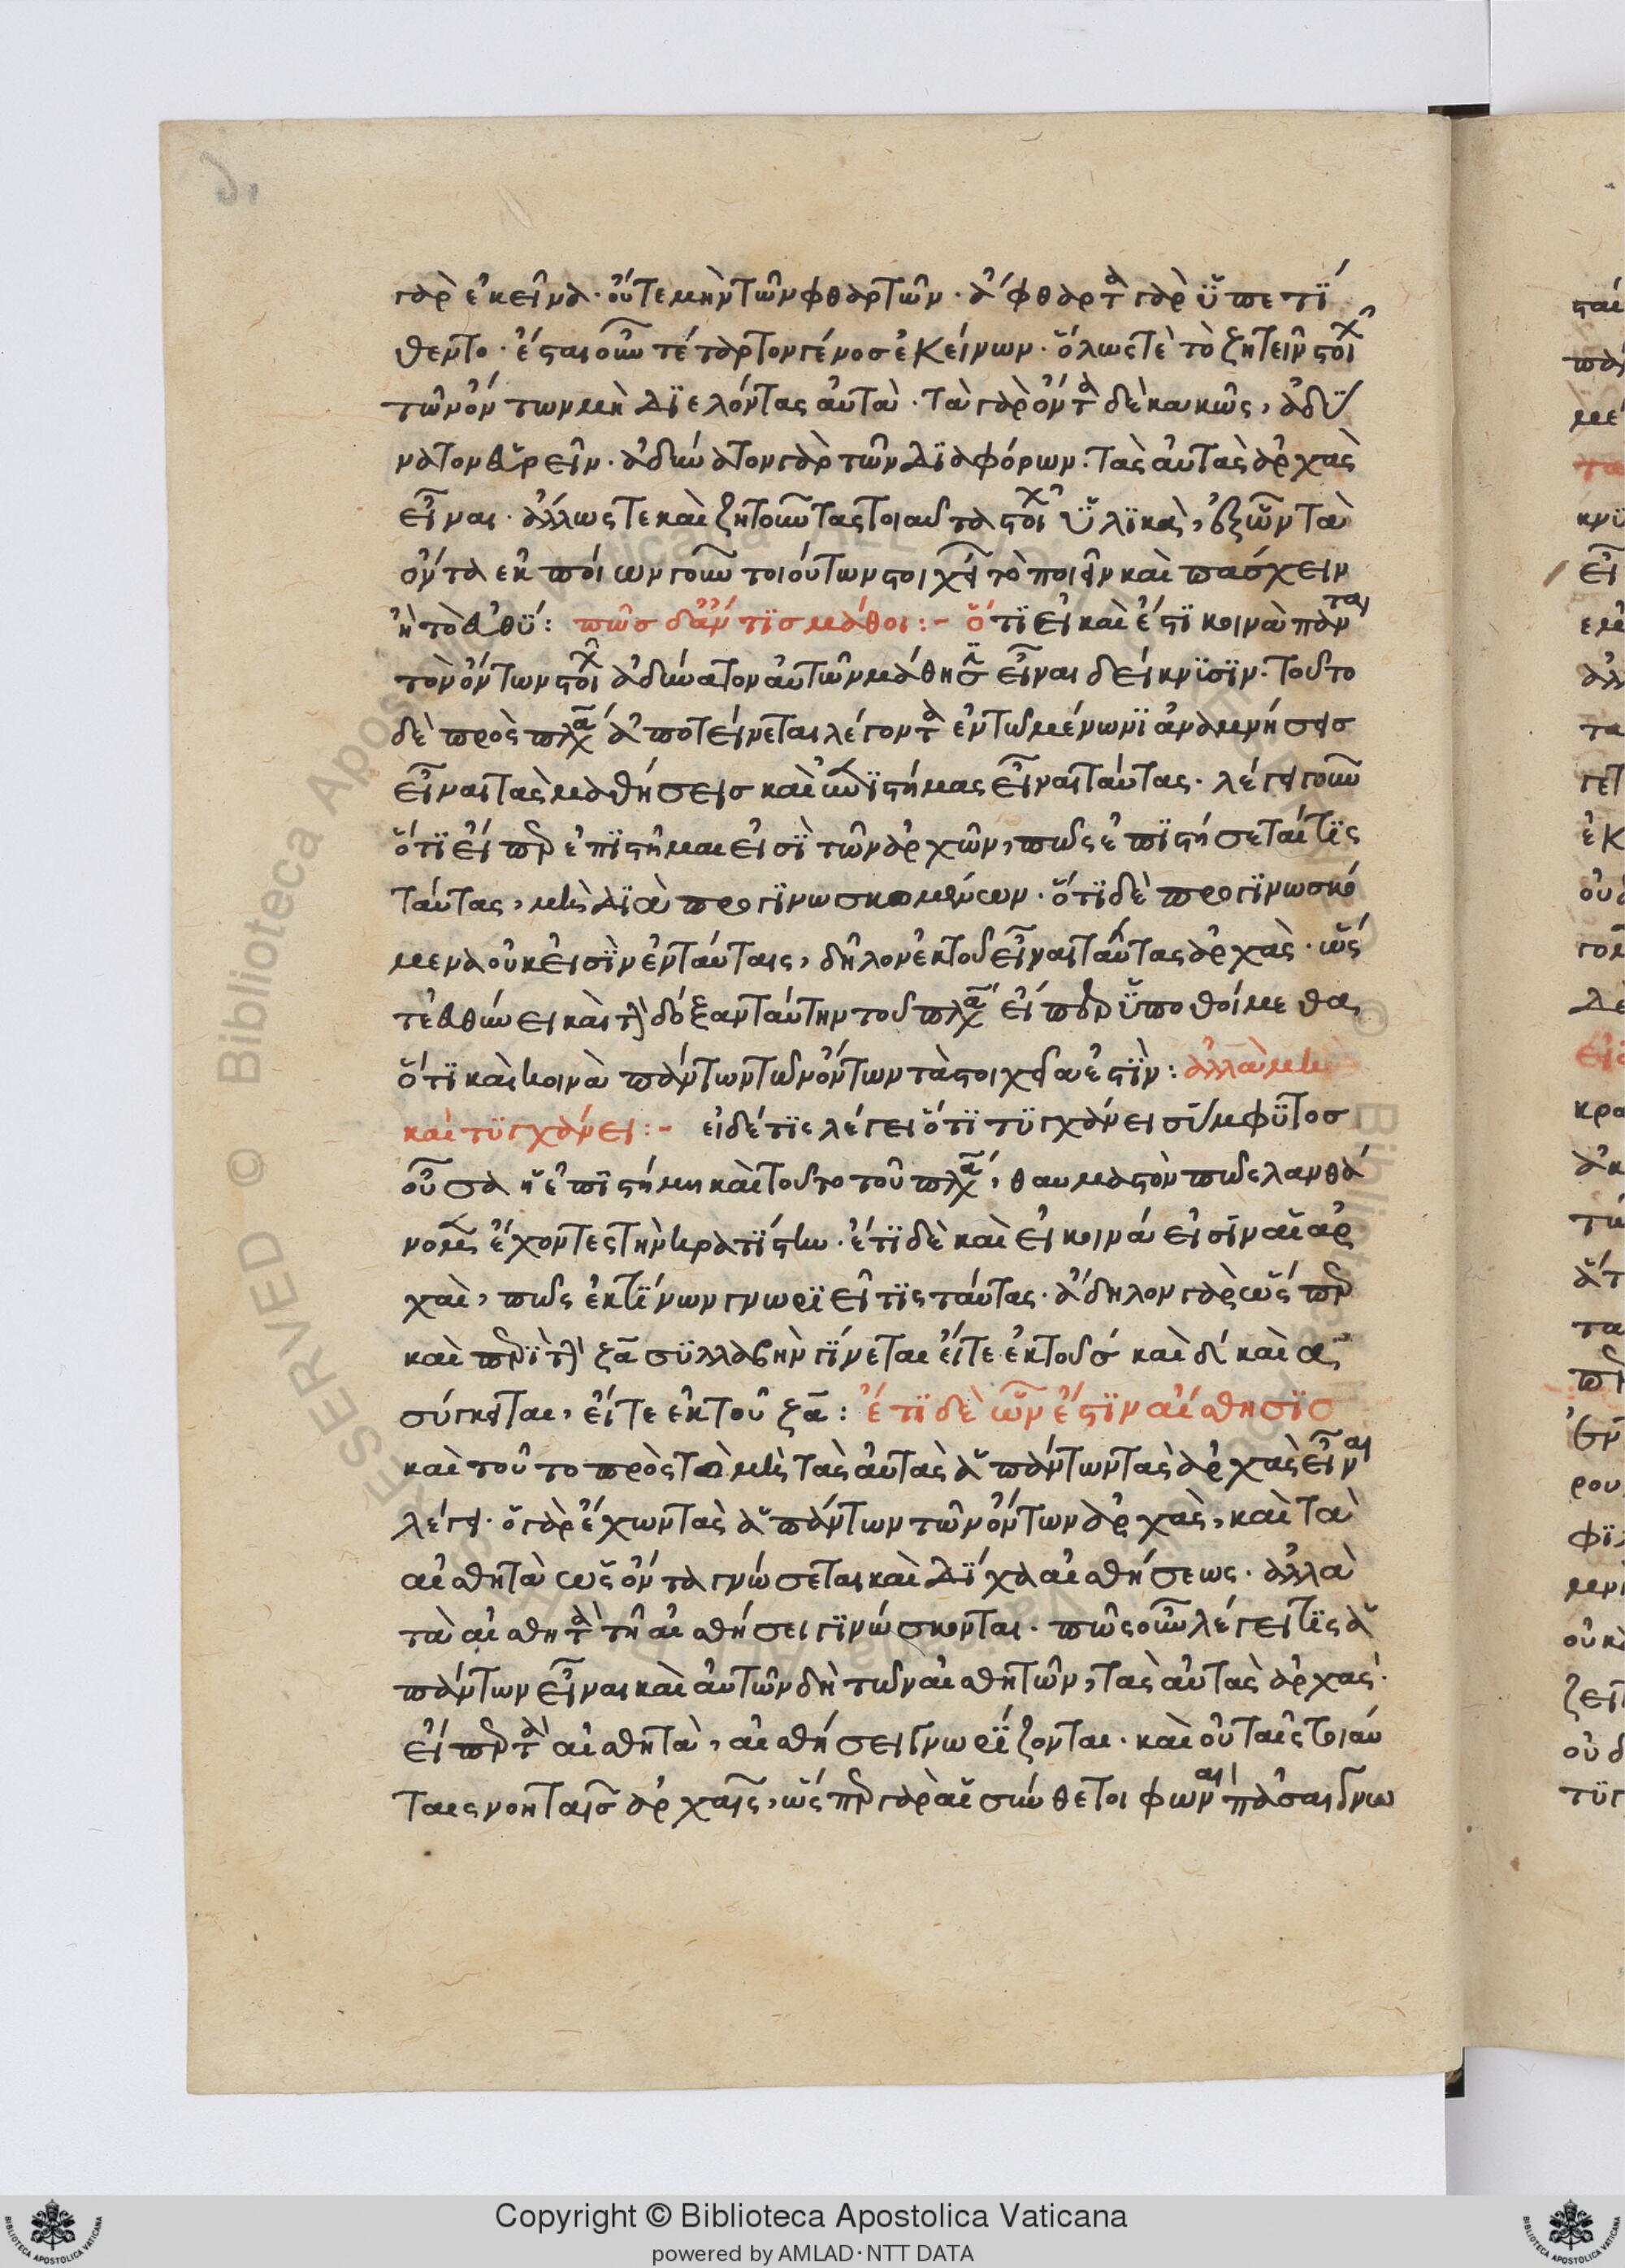 γὰρ ἐκεῖνα · οὔτε μὴν τῶν φθαρτῶν · ἄφθαρτα γὰρ ὑπετί
θεντο · ἔσται οὖν τέταρτον γένος ἐκείνων · ὅλως τὲ τὸ ζητεῖν στοιχ
τῶν ὄντων μὴ διελόντας αὐτὰ · τὰ γὰρ ὄντα δὲ καὶ κῶς, ἀδύ
νατον εὑρεῖν · ἀδύνατον γὰρ τῶν διαφόρων · τὰς αὐτὰς ἀρχὰς
εἶναι · ἄλλως τε καὶ ζητοῦντας τοιαῦτα στοιχ ὑλικὰ, ἐξ ὧν τὰ
ὄντα ἐκ ποίων γοῦν τοιούτων στοιχεί τὸ ποιεῖν καὶ πάσχειν
ἢ τὸ εὐθύ : πῶς δ' ἄν τις μάθοι :- ὅτι εἰ καὶ ἔστι κοινὰ πάντα
τὸν ὄντων στοιχ ἀδύνατον αὐτῶν μάθησ εἶναι δείκνισιν · τοῦτο
δὲ πρὸς πλ ἀποτείνεται λέγοντα ἐν τῶ μένωνι ἀναμνήσεις
εἶναι τὰς μαθήσεις καὶ ἐπιστήμας εἶναι ταύτας · λέγει γοῦν
ὅτι εἴπερ ἐπιστῆμαι εἰσὶ τῶν ἀρχῶν, πῶς ἐπιστήσεταί τις
ταύτας, μὴ διὰ προγινωσκομένων · ὅτι δὲ προγινωσκό
μενα οὐκ εἰσὶν ἐν ταύταις, δῆλον ἐκ τοῦ εἶναι ταύτας ἀρχὰς · ὥς
τε εὐθύνει καὶ τὴν δόξαν ταύτην τοῦ πλ εἴπερ ὑποθοίμεθα
ὅτι καὶ κοινὰ πάντων τῶν ὄντων τὰ στοιχεῖα ἐστὶν : ἀλλὰ μὴν
καὶ τυγχάνει :- εἰ δέ τις λέγει ὅτι τυγχάνει σύμφυτος
οὖσα ἡ ἐπιστήμη καὶ τοῦτο τοῦ πλ, θαυμαστὸν πῶς λανθά
νομεν ἔχοντες τὴν κρατίστην · ἔτι δὲ καὶ εἰ κοινά εἰσὶν αἱ ἀρ
χαὶ, πῶς ἐκ τίνων γνωριεῖ τις ταύτας · ἄδηλον γὰρ ὥσπερ
καὶ περὶ τὴν ζα συλλαβὴν γίνεται εἴτε ἐκ τοῦ σ καὶ δ καὶ α
σύγκειται, εἴτε ἐκ τοῦ ζα : ἔτι δὲ ὧν ἔστιν αἴσθησις
καὶ τοῦτο πρὸς τὸ μὴ τὰς αὐτὰς ἁπάντων τὰς ἀρχὰς εἶναι
λέγει · ὁ γὰρ ἔχων τὰς ἁπάντων τῶν ὄντων ἀρχὰς, καὶ τὰ
αἰσθητὰ ὡς ὄντα γνώσεται καὶ δίχα αἰσθήσεως · ἀλλὰ
τὰ αἰσθητὰ τῆ αἰσθήσει γινώσκονται · πῶς οὖν λέγει τις ἁ
πάντων εἶναι καὶ αὐτῶν δὴ τῶν αἰσθητῶν, τὰς αὐτὰς ἀρχὰς ·
εἴπερ τὰ αἰσθητὰ, αἰσθήσει γνωρίζονται · καὶ οὐ ταῖς τοιαύ
ταις νοηταῖς ἀρχαῖς, ὥσπερ γὰρ αἱ σύνθετοι φωναὶ πᾶσαι γνω